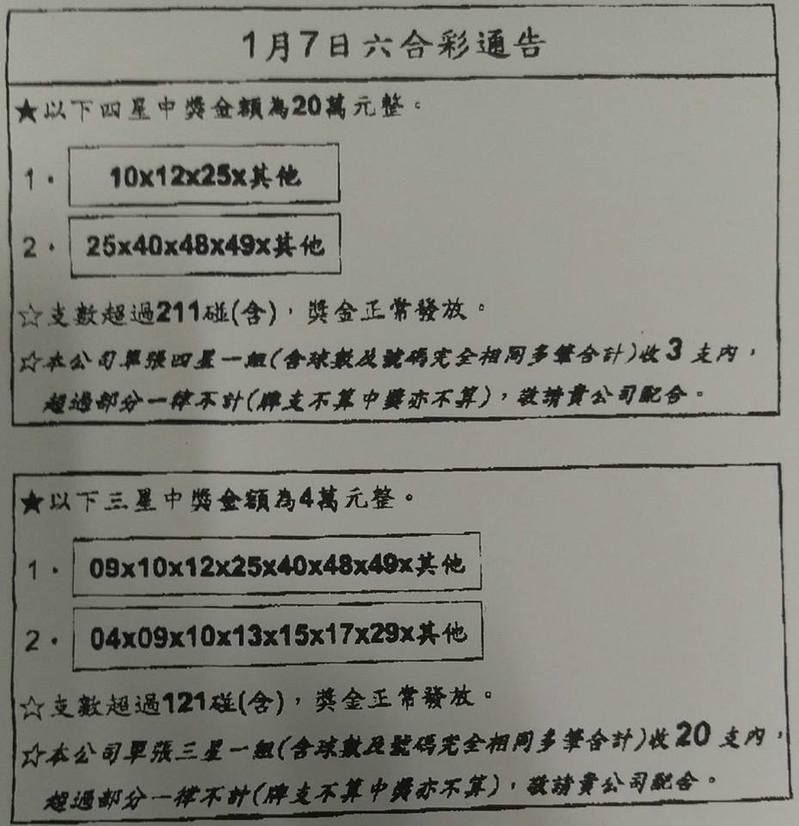 1月7日六合彩通告
★以下四星中獎金額為20萬元整。
1. 10x12x25x其他
2. 25x40x48x49x其他
☆支數超過211碰(含)，獎金正常發放。
☆本公司單張四星一組(含球數及號碼完全相同多筆合計)收3支內，
超過部分一律不計(牌支不算中獎亦不算)，敬請貴公司配合。
★以下三星中獎金額為4萬元整。
1. 09x10x12x25x40x48x49x其他
2. 04x09x10x13x15x17x29x其他
☆支數超過121碰(含)，獎金正常發放。
☆本公司單張三星一組(含球數及號碼完全相同多筆合計)收20支內，
超過部分一律不計(牌支不算中獎亦不算)，敬請貴公司配合。